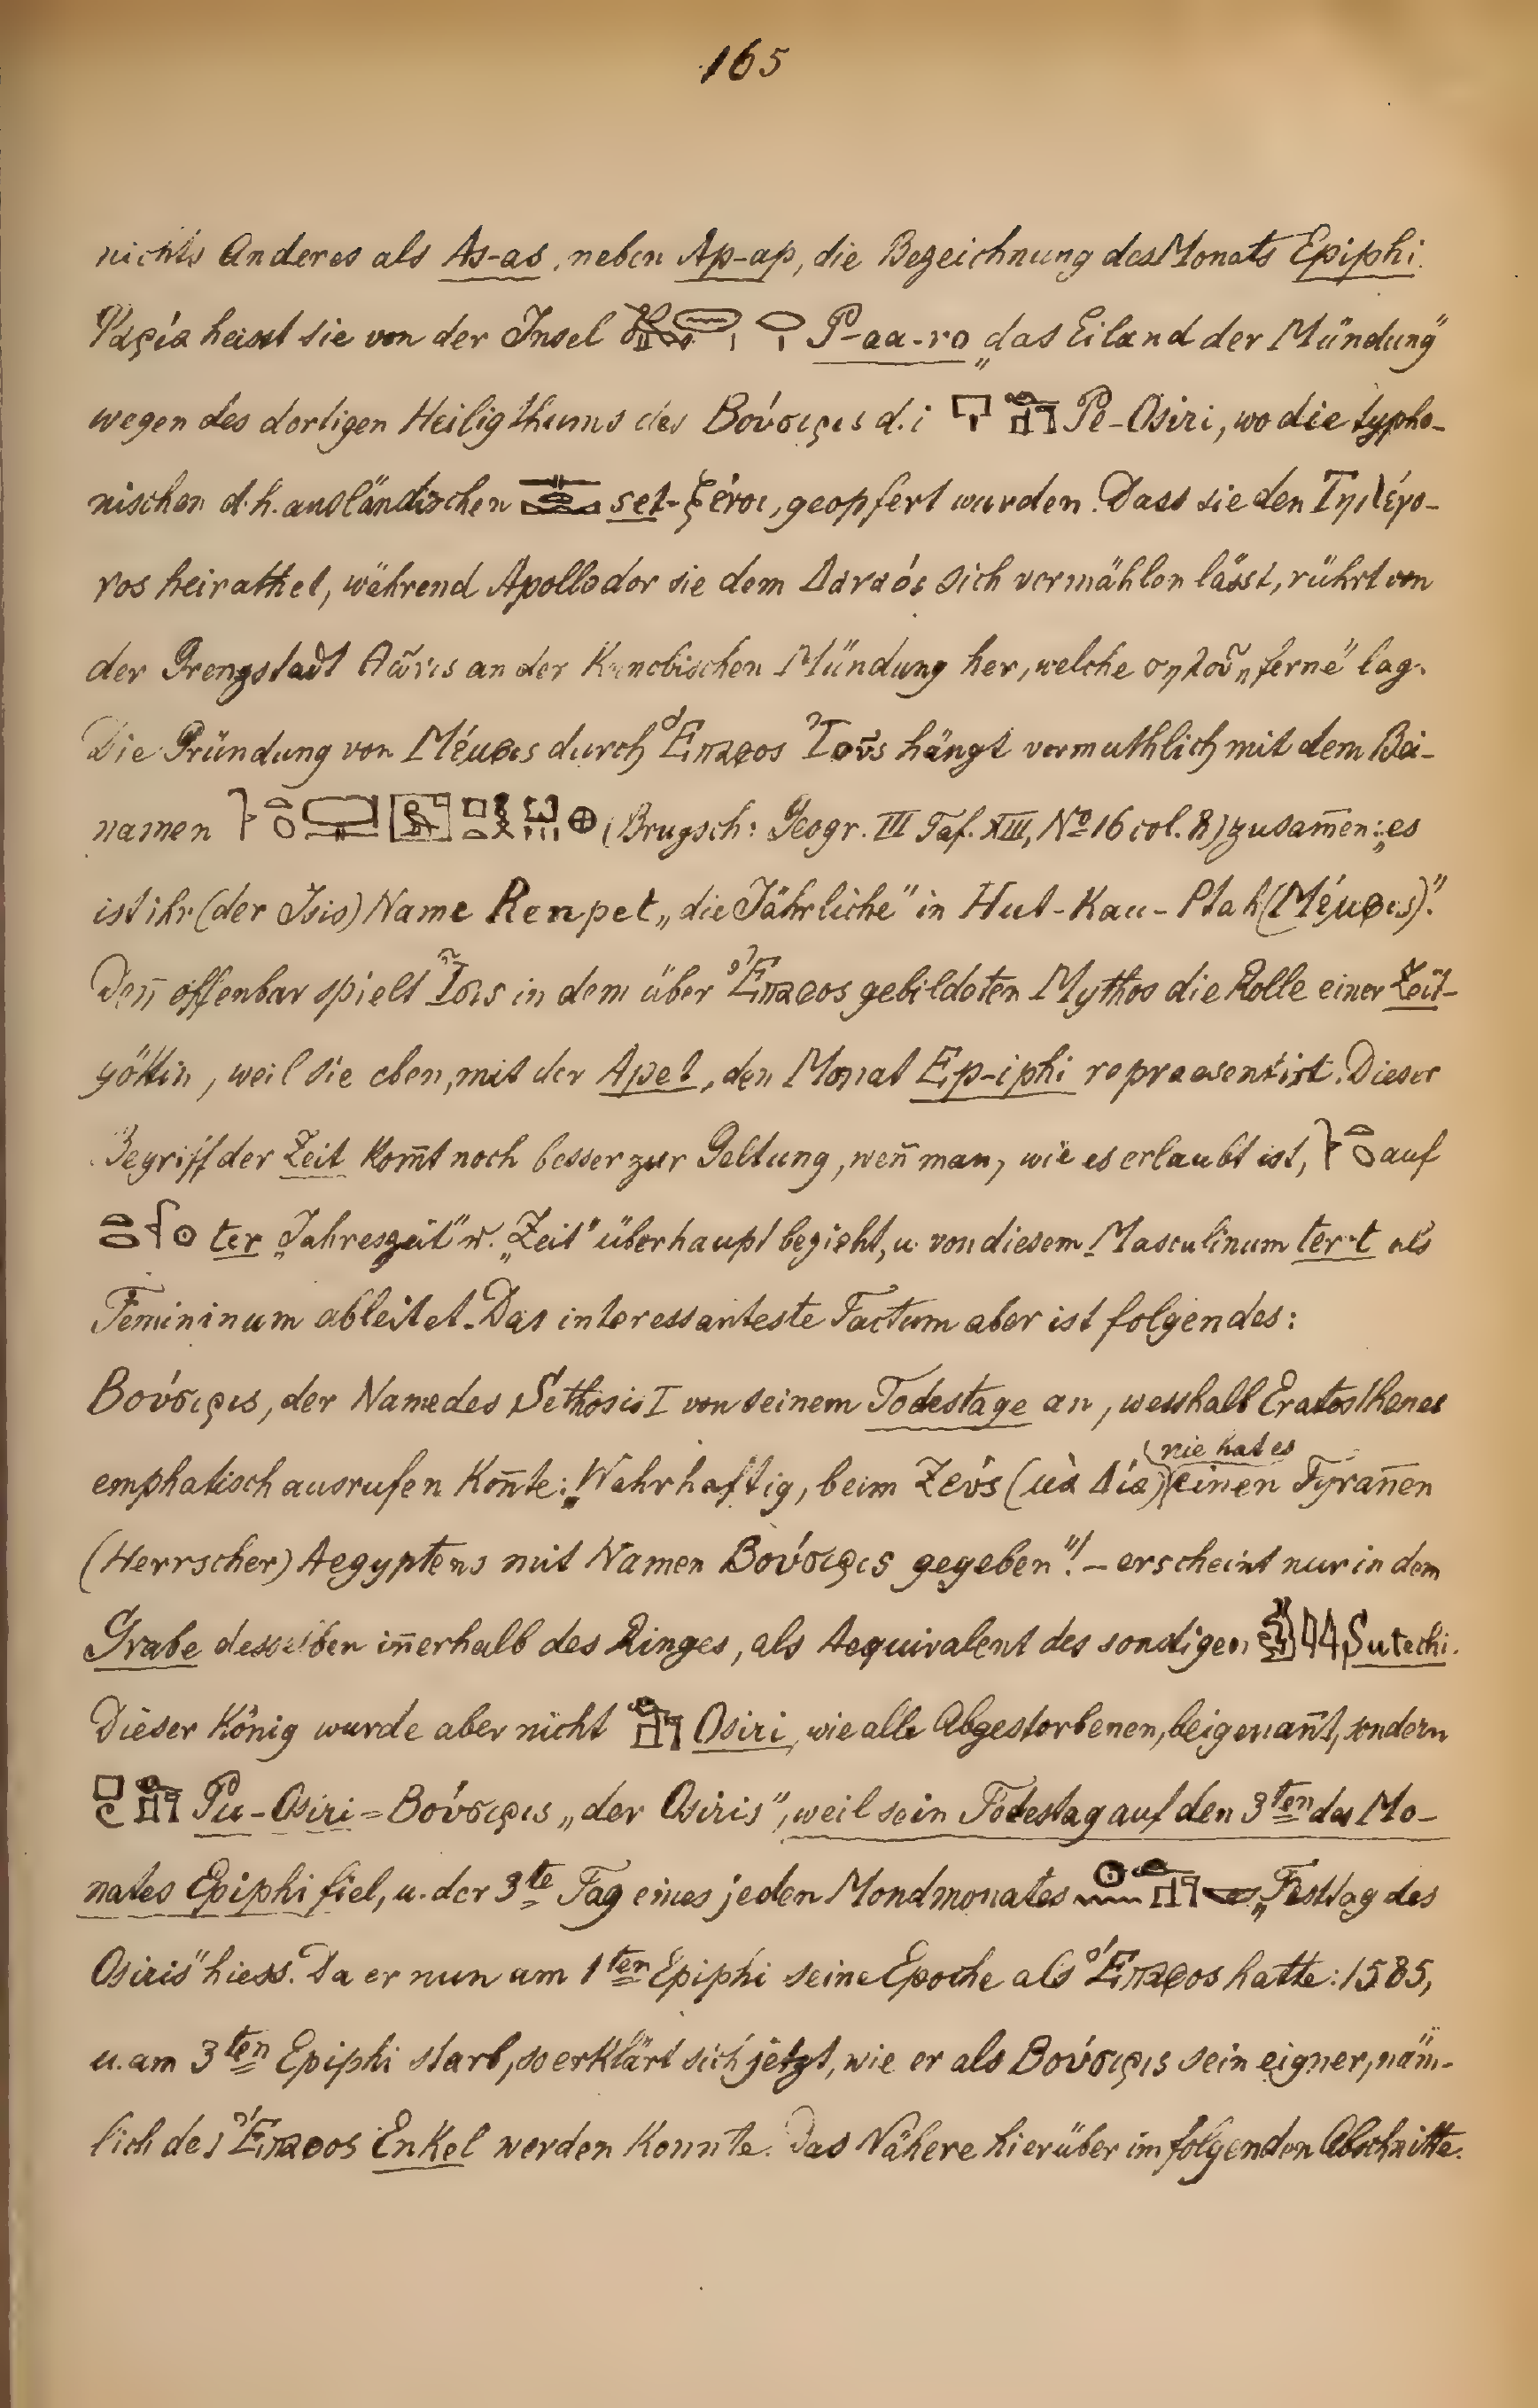 165
nichts Anderes als As-as, neben Ap-ap, die Bezeichnung des Monats Epiphi.
heisst sie von der Insel P-aa-ro „das Eiland der Mündung"
wegen des dortigen Heiligthums des Βούσιρις d.i Pe-Osiri, wo die typho-
nischen d.h. ausländischen set-ξένοι, geopfert wurden. Dass sie den Τηλέγο-
νος heirathet, während Apollodor sie dem Δαναός sich vermählen lässt, rührt von
der Grenzstadt an der Kanobischen Mündung her, welche „ferne" lag.
Die Gründung von Μέμφις durch Ἔπαφος hängt vermuthlich mit dem Bei-
namen (Brugsch: Geogr. III Taf. XIII, No 16 col. 8) zusam̄en: „es
ist ihr (der Isis) Name Renpet „die Jährliche" in Hut-Kau-Ptah (Μέμφις)".
Den̄ offenbar spielt Ἶσις in dem über Ἔπαφος gebildeten Mythos die Rolle einer Zeit-
göttin, weil sie eben, mit der Apet, den Monat Ep-iphi repraesentirt. Dieser
Begriff der Zeit kom̄t noch besser zur Geltung, wen̄ man, wie es erlaubt ist, auf
ter „Jahreszeit" u. „Zeit" überhaupt bezieht, u. von diesem Masculinum ter-t als
Femininum ableitet. Das interessanteste Factum aber ist folgendes:
Βούσιρις, der Name des Sethosis I von seinem Todestage an, wesshalb Eratosthenes
emphatisch ausrufen kon̄te: „Wahrhaftig, beim Ζεύς (μὰ Δία) (nie hat es) einen Tyran̄en
(Herrscher) Aegyptens mit Namen Βούσιρις gegeben"! – erscheint nur in dem
Grabe desselben in̄erhalb des Ringes, als Aequivalent des sonstigen Sutechi.
Dieser König wurde aber nicht Osiri, wie alle Abgestorbenen, beigenan̄t, sondern
Pu-Osiri = Βούσιρις „der Osiris", weil sein Todestag auf den 3ten des Mo-
nates Epiphi fiel, u. der 3te Tag eines jeden Mondmonates „Festtag des
Osiris" hiess. Da er nun am 1ten Epiphi seine Epoche als Ἔπαφος hatte: 1585,
u. am 3ten Epiphi starb, so erklärt sich jetzt, wie er als Βούσιρις sein eigner, näm-
lich des Ἔπαφος Enkel werden konnte. Das Nähere hierüber im folgenden Abschnitte.